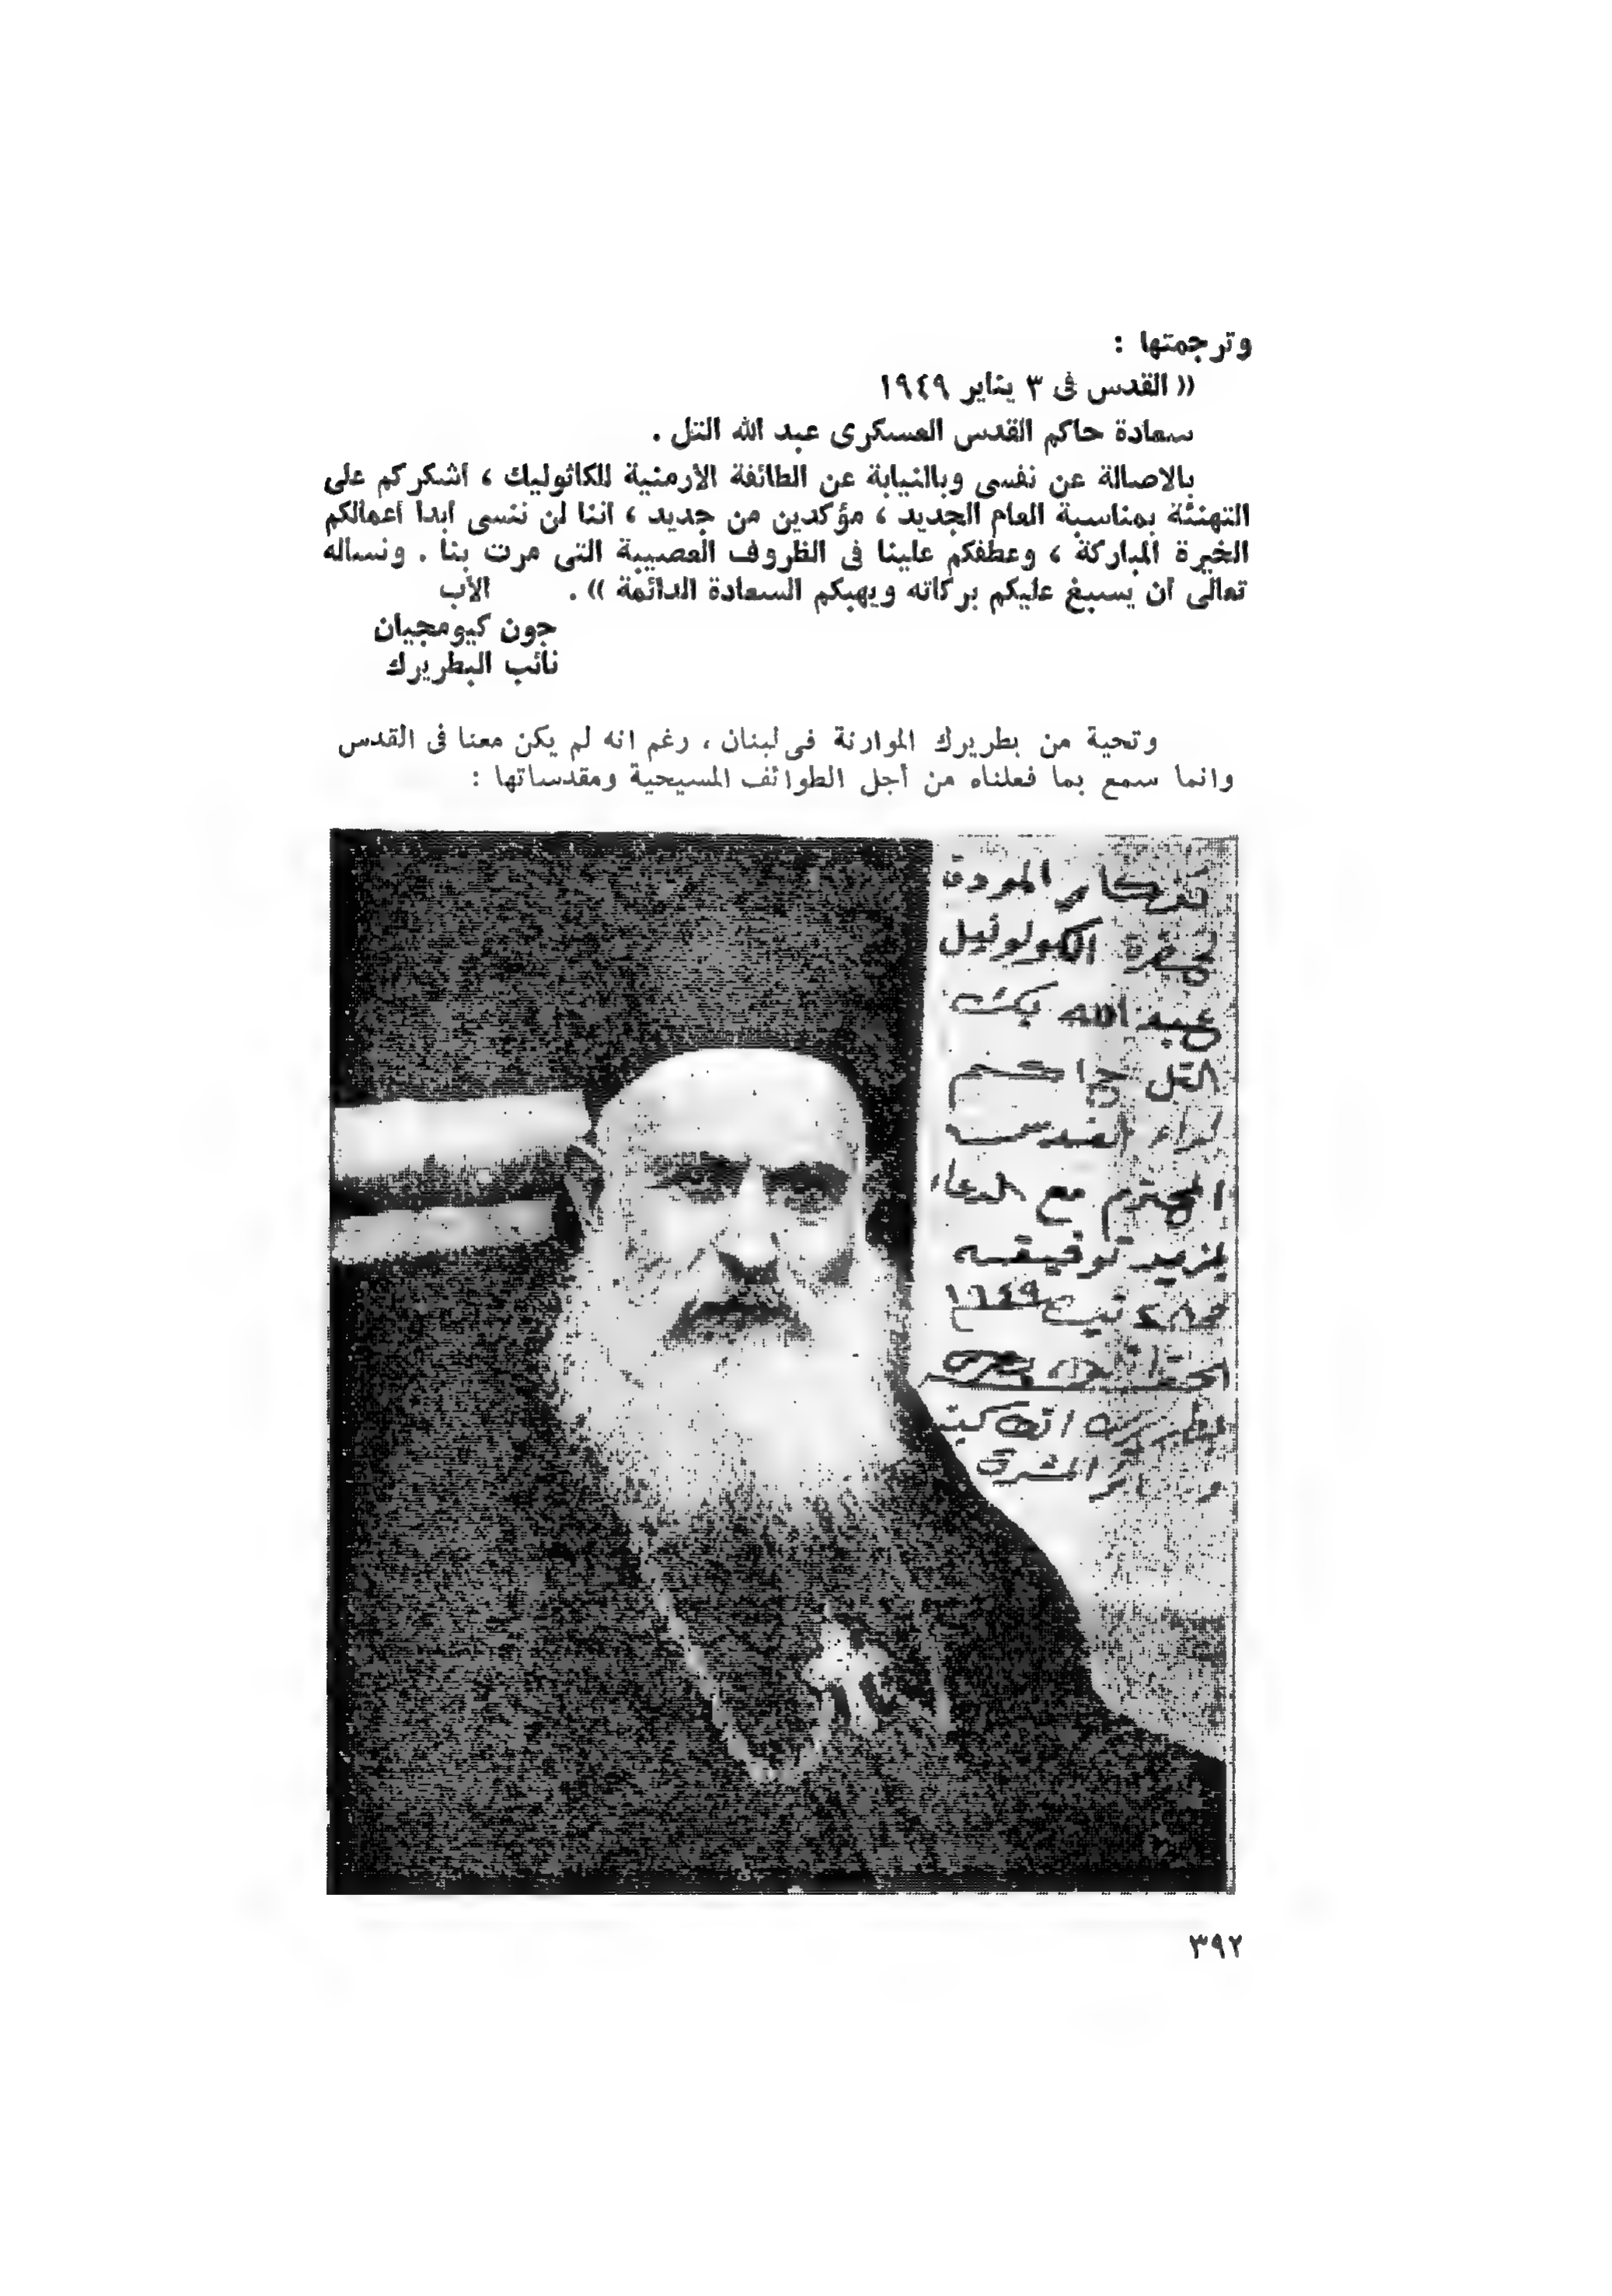 وترجمتها :
(( القدس فى ٣ يناير ١٩٤٩
سعادة حاكم القدس العسكرى عبد الله التل .
بالاصالة عن نفسى وبالنيابة عن الطائفة الأرمنية للكاثوليك ، أشكركم على
التهنئة بمناسبة العام الجديد ، مؤكدين من جديد ، اننا لن ننسى أبدا أعمالكم
الخيرة المباركة ، وعطفكم علينا فى الظروف العصيبة التى مرت بنا . ونساله
تعالى أن يسبغ عليكم بركاته ويهبكم السعادة الدائمة )) . الأب
جون كيومجيان
نائب البطريرك
وتحية من بطريرك الموارنة فى لبنان ، رغم انه لم يكن معنا فى القدس
وانما سمع بما فعلناه من أجل الطوائف المسيحية ومقدساتها :
تذكار المودة
لحضرة الكولونيل
عبد الله بك
التل حاكم
لواء القدس
المحترم مع الدعاء
بمزيد توفيقه
١٩٤٩
المشرق
٣٩٢